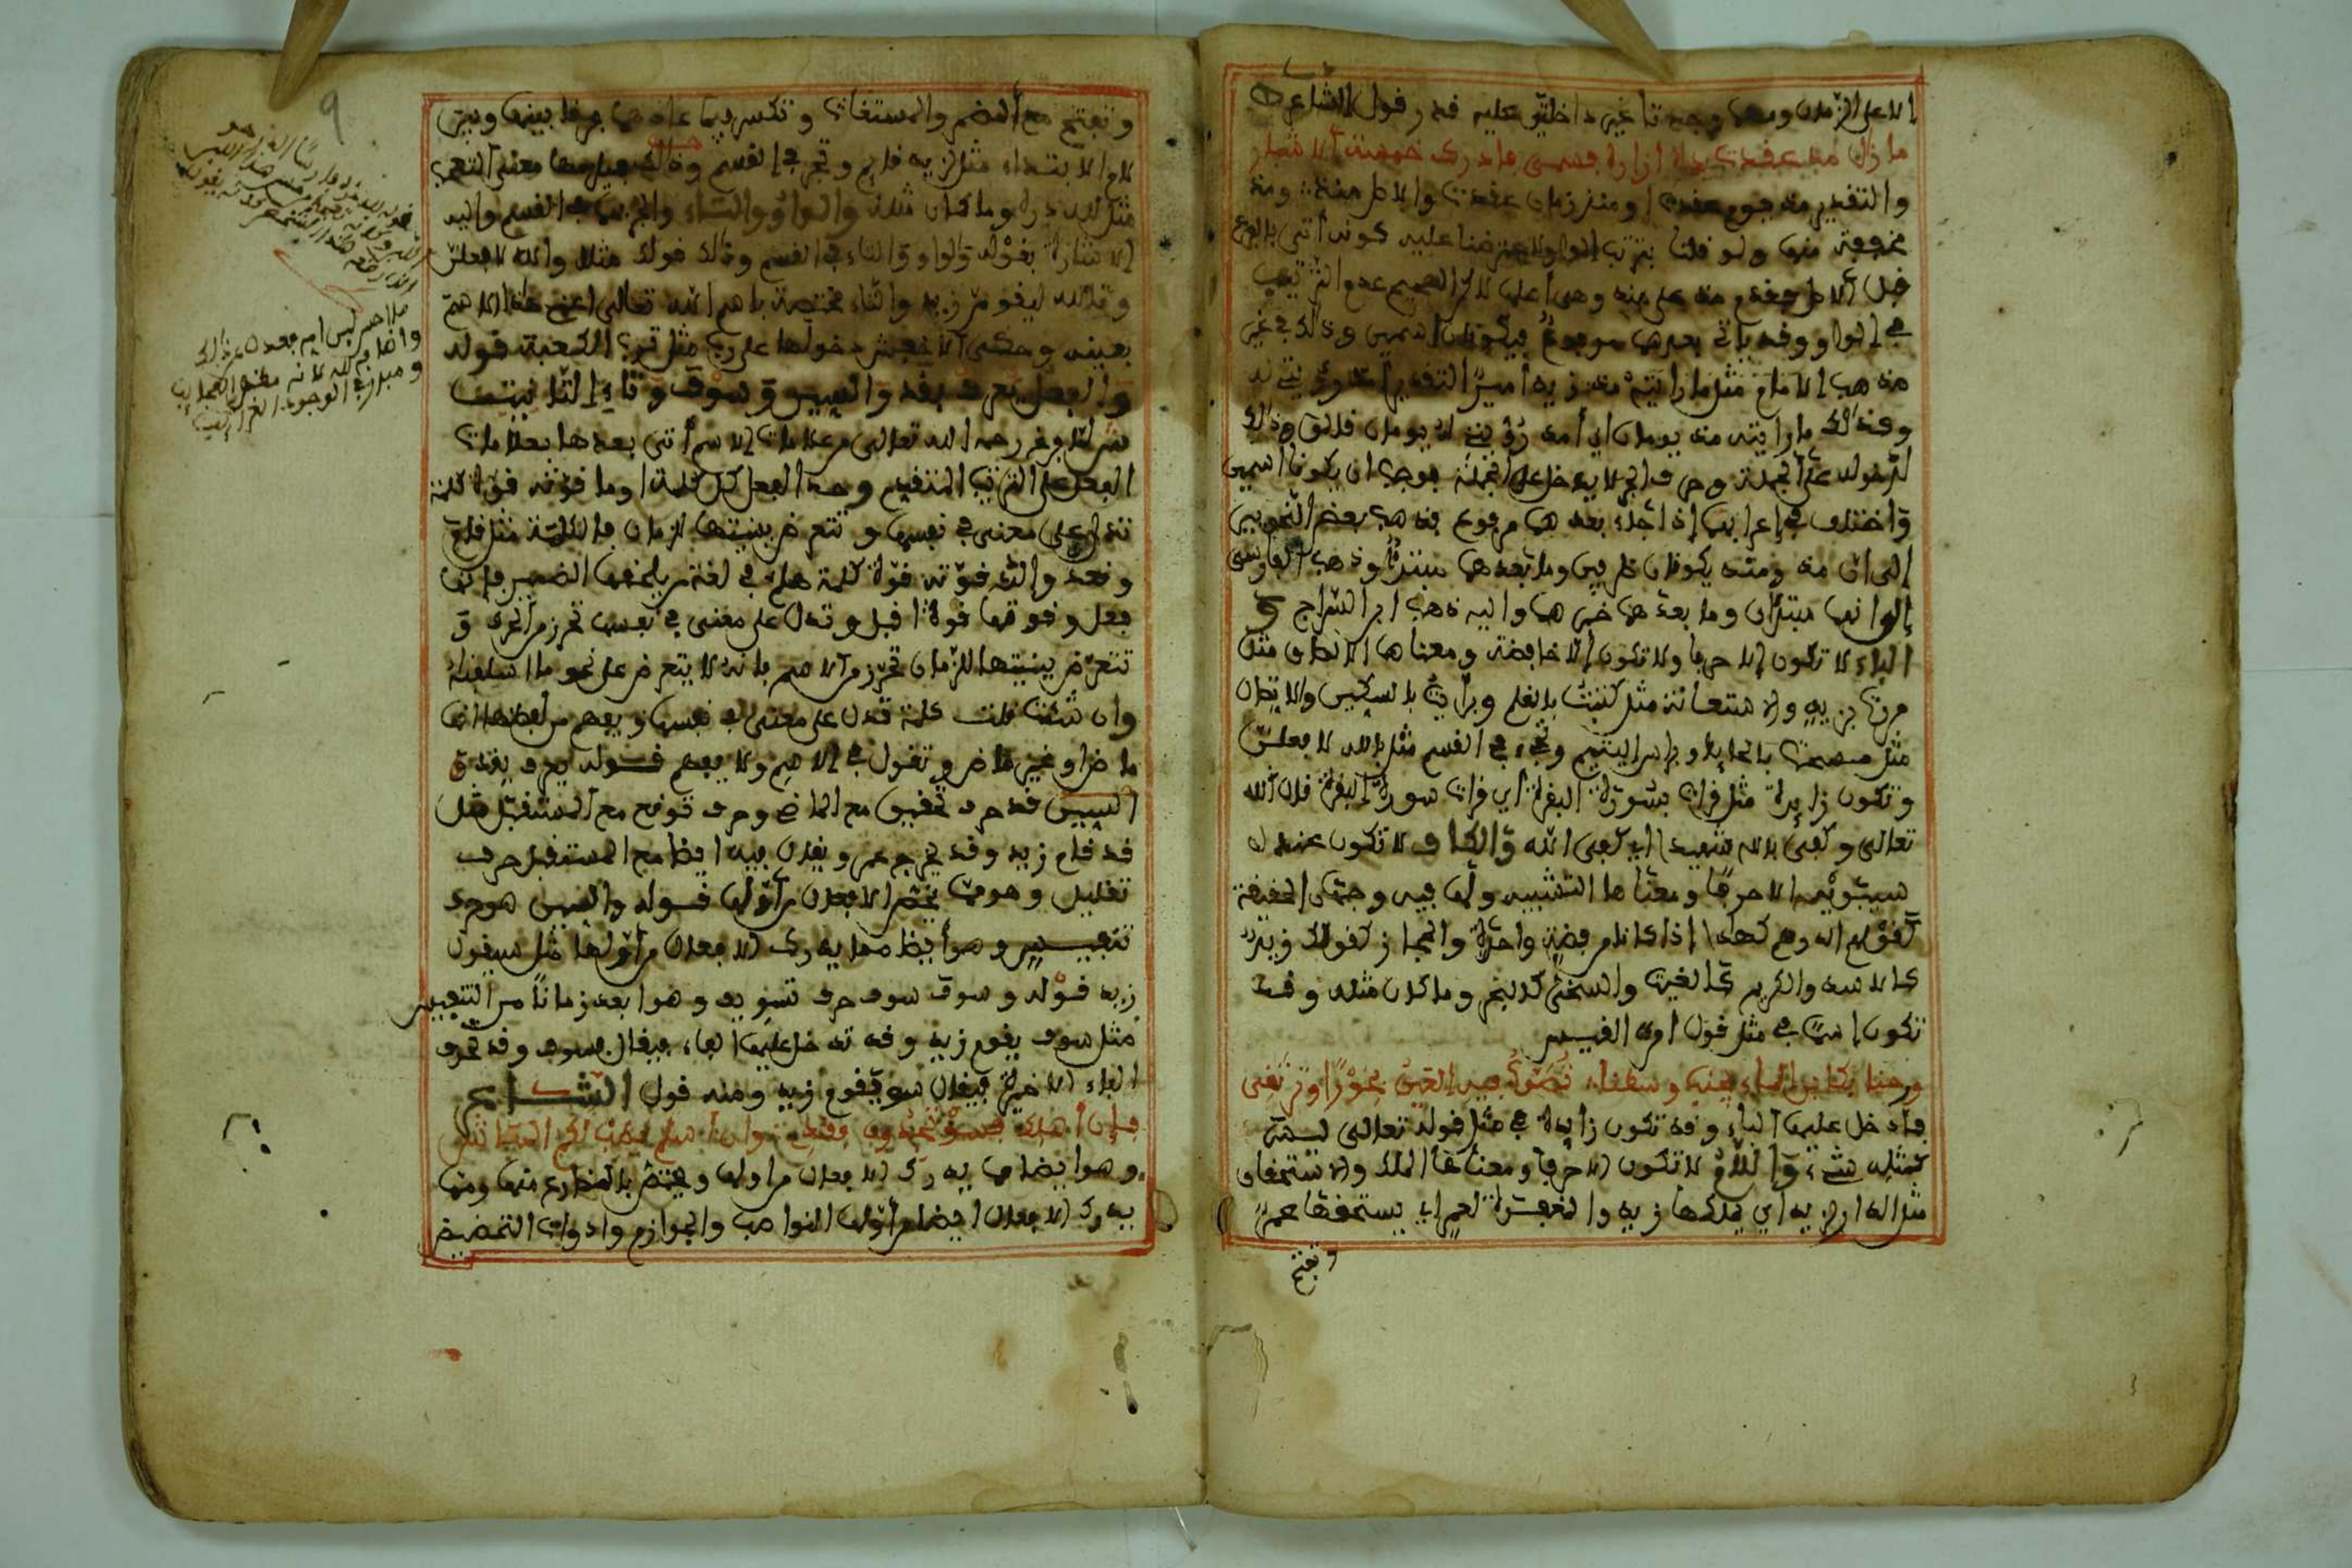 الا على الزمان ومهما وجدتا غير داخلتين عليه قدر وقول الشاعر
ما زال مذ عقدت يداه ازاره فسمى فادرك خمسة الاشبار
والتقدير مذ يوم عقدت او مذ زمان عقدت والاصل منذ ومذ
مخففة منها ولو قلنا بترتيب الواو لا عترضنا عليه كونه أتى بالفرع
قبل الاصل فقدم مذ على منذ وهي أعلى لاكن الصحيح عدم الترتيب
في الواو وقد ياتي بعدهما مرفوع فيكونان اسمين وذلك في غير
مذهب الامام مثل ما رايته مذ زيد أمير التقدير
وكذلك ما رايته مذ يومان اي أمد رؤيتي له يومان قلت وذلك
لدخوله على الجملة وحرف الجر لا يدخل على الجملة فوجب ان يكونا اسمين
واختلف في إعرابهما إذا جاء بعدهما مرفوع فذهب بعض النحويين
إلى أن مذ ومنذ يكونان ظرفين وما بعدهما مبتدأ وذهب الفارسي
إلى انهما مبتدآن وما بعدهما خبرهما واليه ذهب ابن السراج و
الباء لا تكون إلا حرفا ولا تكون إلا خافضة ومعناها الالصاق مثل
مررت بزيد والاستعانة مثل كتبت بالقلم وبريت بالسكين والالصاق
مثل مسحت بالحايط وبراس اليتيم وتجيء في القسم مثل بالله لافعلن
وتكون زايدة مثل قرات بسورة البقرة اي قرات سورة البقرة قال الله
تعالى وكفى بالله شهيدا اي كفى الله والكاف لا تكون عند
سيبويه الا حرفا ومعناها التشبيه ولها فيه وجهان الحقيقة
كقولهم الدرهم كهذا إذا كانا من فضة واحدة والمجاز كقولك زيد
كالاسد والكريم كالغيث والسخي كالبحر وما كان مثله وقد
تكون إسما في مثل قول امرئ القيس
ورحنا بكابن الماء يجنب وسطنا تصوب فيه العين طورا وترتقي
فادخل عليها الباء وقد تكون زايدة في مثل قوله تعالى ليس
كمثله شيء واللام لا تكون الا حرفا ومعناها الملك والاستحقاق
مثل الدار لزيد اي يملكها زيد والمغفرة لعمر اي يستحقها عمر
وتفتح
9
وتفتح مع المضمر والمستغاث وتكسر فيما عداهما فرقا بينها وبين
لام الابتداء مثل لزيد قايم وتجر في القسم وذلك فيما معنى التعجب
مثل لله دره وما كان مثله والواو والتاء والجر بهما في القسم واليه
الاشارة بقوله والواو والتاء في القسم وذلك قولك مثلا والله لافعلن
وتالله ليقومن زيد والتاء مختصة باسم الله تعالى اعني هذا الاسم
بعينه وحكى الاخفش دخولها على رب مثل ترب الكعبة قوله
والفعل يعرف بقد والسين وسوف وتاء التانيث
شرع لما فرغ رحمه الله تعالى من علامات الاسم أتى بعدها بعلامات
الفعل على الترتيب المتقدم وحد الفعل كل كلمة او ما قوته قوة كلمة
تدل على معنى في نفسها وتتعرض ببنيتها للزمان فالكلمة مثل قام
وقعد والذي قوته قوة كلمة هلم في لغة من يلحقها الضمير فانها
فعل وقوتها قوة اقبل وتدل على معنى في نفسها تحرز من الحرف و
تتعرض ببنيتها للزمان تحرز من الاسم بانه لا يتعرض على نحو ما اسلفناه
وان شئت قلت كلمة تدل على معنى في نفسها ويفهم من لفظها انها
ماض او غير ماض وتقول في الاسم ولا يفهم قوله يعرف بقد و
السين قد حرف تحقيق مع الماضي وحرف توقع مع المستقبل مثل
قد قام زيد وقد يخرج عمر ويقال فيه ايضا مع المستقبل حرف
تقليل وهو مما يختص الافعال من أولها قوله والسين هو حرف
تنفيس وهو أيضا مما يدرك الافعال من أولها مثل سيقوم
زيد قوله وسوف سوف حرف تسويف وهو ابعد زمانا من التنفيس
مثل سوف يقوم زيد وقد تدخل عليها الفاء فيقال فسوف وقد تحذف
الفاء الاخيرة فيقال سو يقوم زيد ومنه قول الشاعر
فإن أهلك فسو تجدون فقدي وان اسلم يطب لكم المعاش
وهو ايضا مما يدرك الافعال من اولها ويختص بالمضارع منها ومما
يدرك الافعال ايضا من أولها النواصب والجوازم وادوات التحضيض